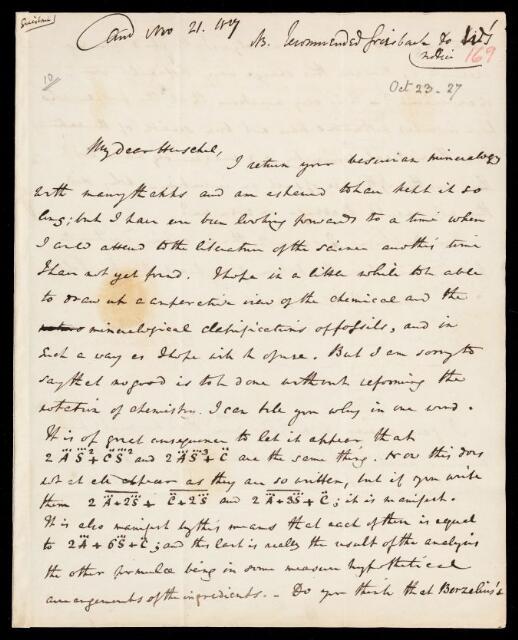 Ansd Nov 21. 1827
NB. recommended Griesbach to
notice
169
10
Oct 23 - 27
My dear Herschel,
I return your Vesuvian mineralogy
with many thanks and am ashamed to have kept it so
long; but I have ever been looking forwards to a time when
I could attend to the literature of the science another time
I have not yet found. I hope in a little while to be able
to draw up a comparative view of the chemical and the
mineralogical classifications of fossils, and in
such a way as I hope will be of use. But I am sorry to
say that no good is to be done without reforming the
notation of chemistry. I can tell you why in one word.
It is of great consequence to let it appear, that
2 A⃛ S⃛² + C̈ S⃛² and 2 A⃛ S⃛³ + C̈ are the same thing. Now this does
not at all appear as they are so written, but if you write
them 2 A⃛+2S⃛ + C̈+2S⃛ and 2 A⃛+3S⃛ + C̈; it is manifest.
It is also manifest by this means that each of them is equal
to 2A⃛ + 6S⃛ + C̈; and this last is really the result of the analysis
the other formulæ being in some measure hypothetical
arrangements of the ingredients. - Do you think that Berzelius's